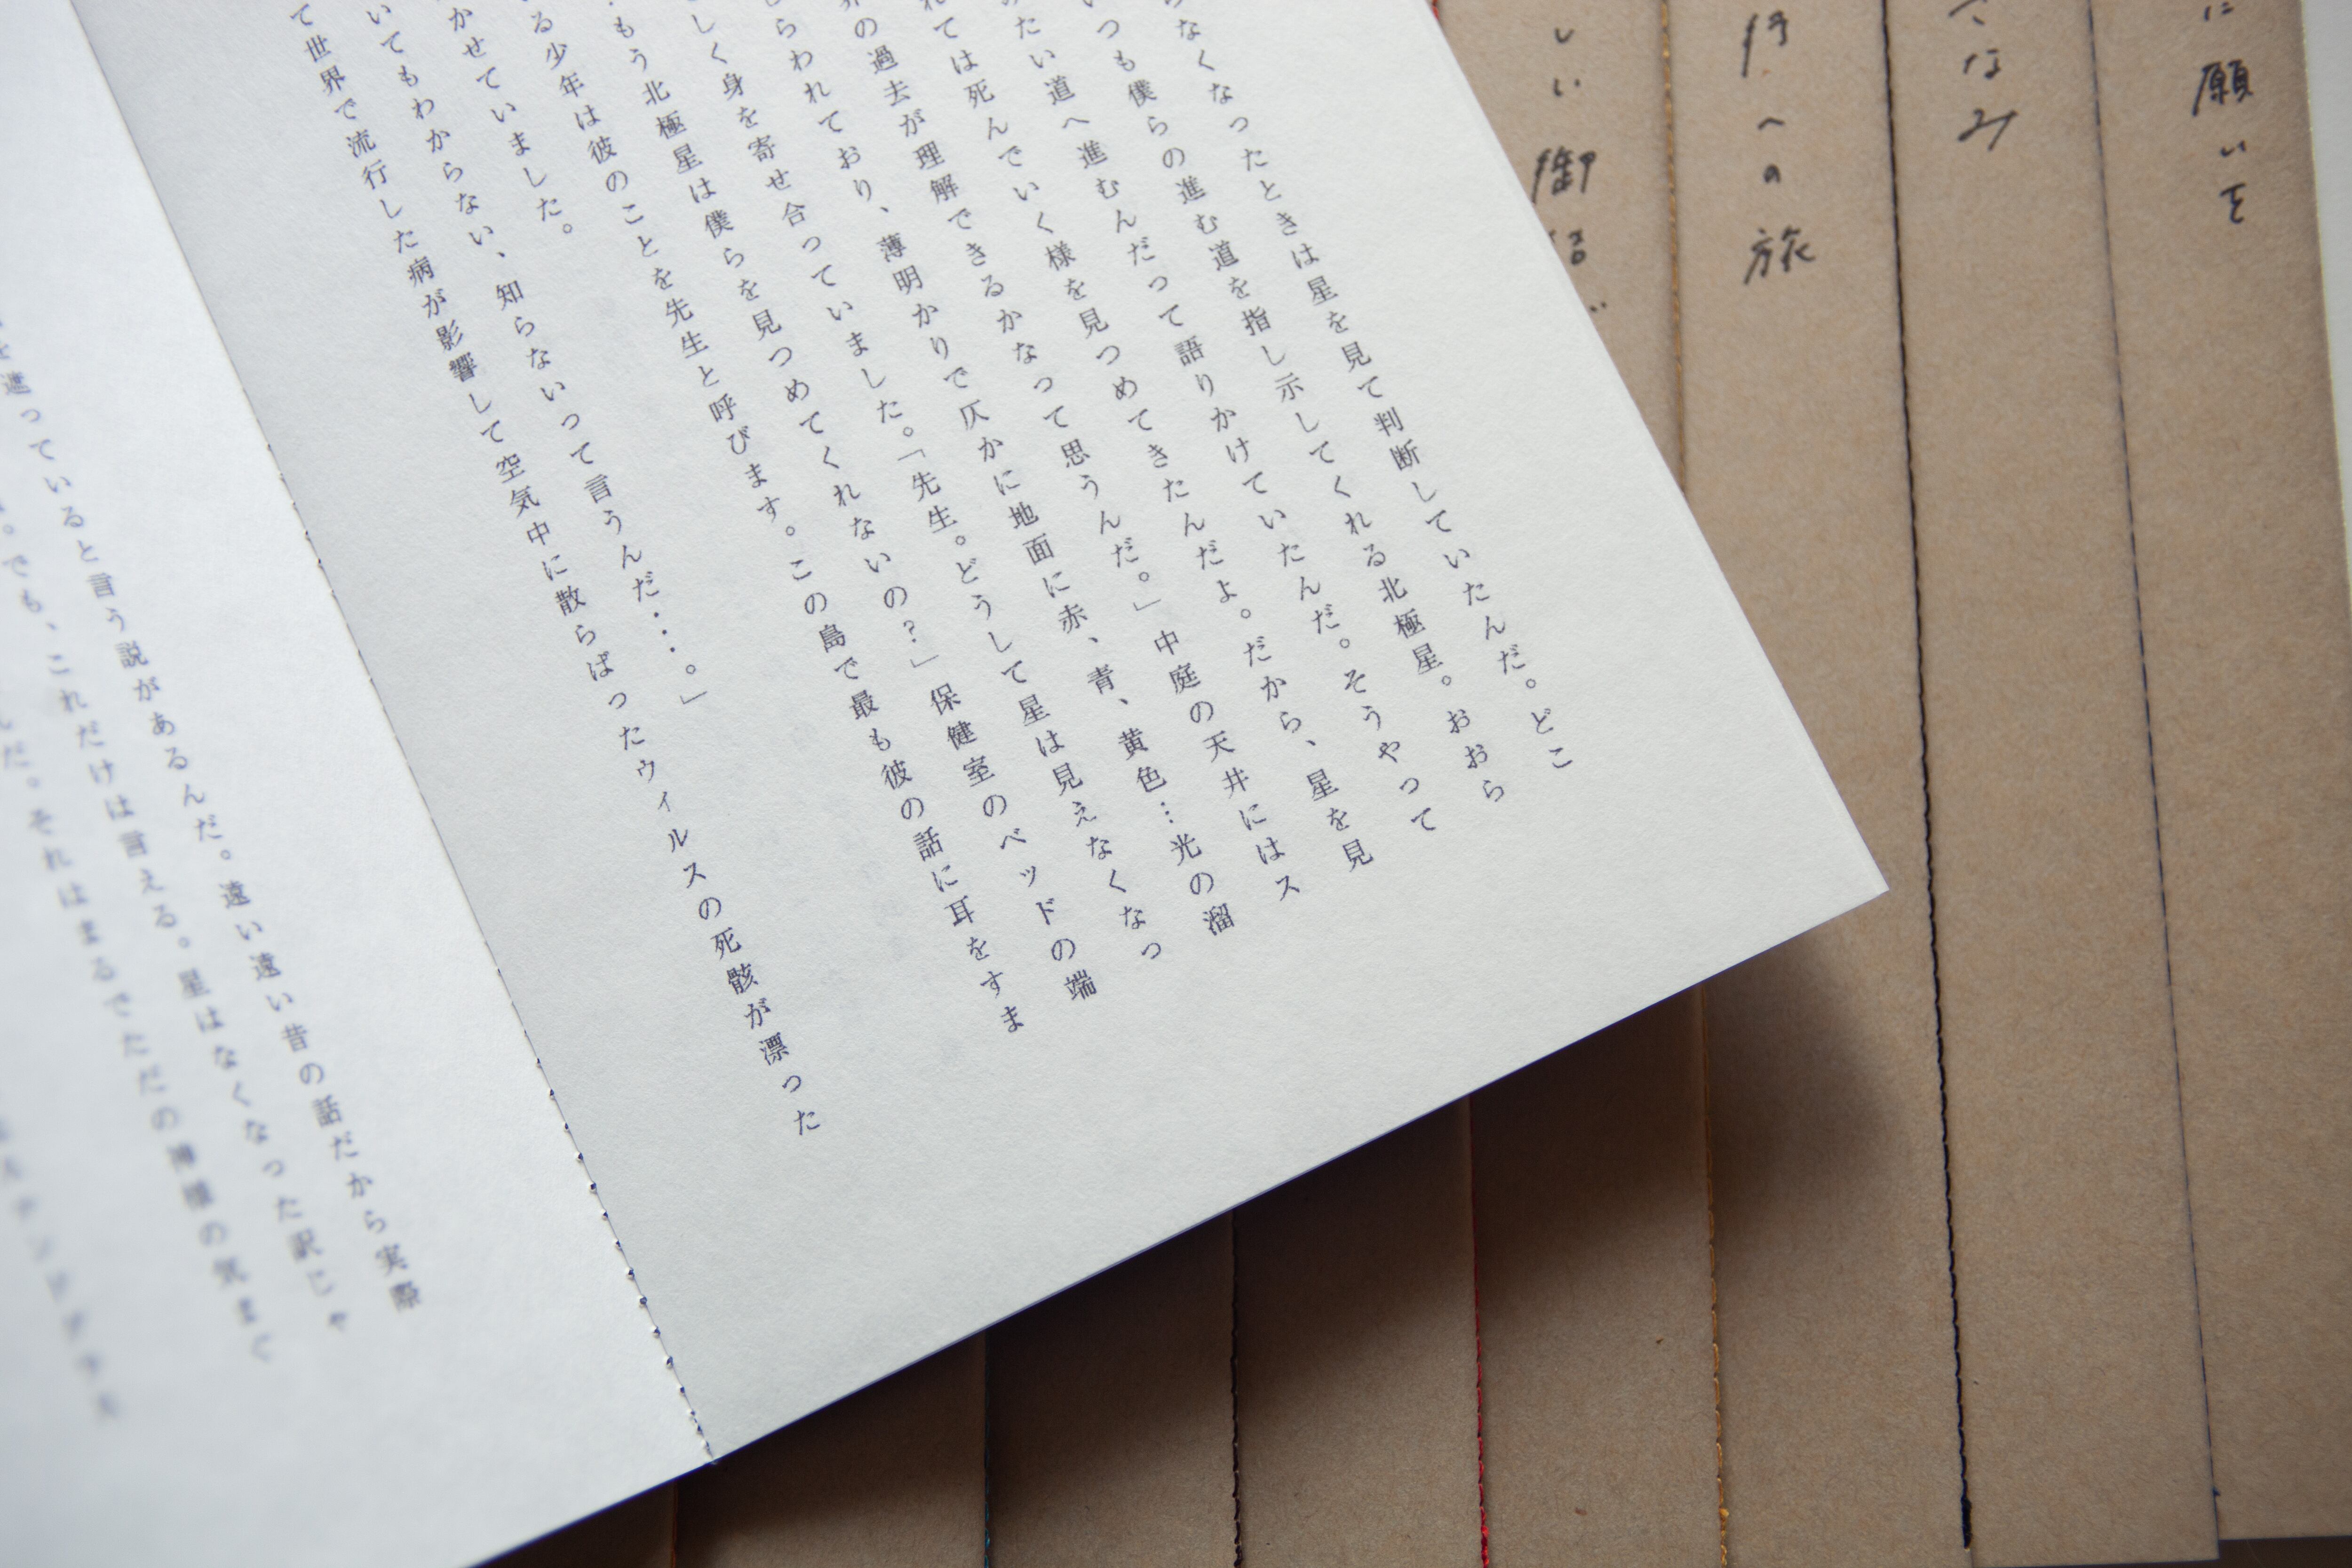 に願いを
なみ
への旅
しい御
らなくなったときは星を見て判断していたんだ。どこ
いつも僕らの進む道を指し示してくれる北極星。おおら
たい道へ進むんだって語りかけていたんだ。そうやって
れては死んでいく様を見つめてきたんだよ。だから、星を見
界の過去が理解できるかなって思うんだ。」中庭の天井にはス
らわれており、薄明かりで仄かに地面に赤、青、黄色…光の溜
しく身を寄せ合っていました。「先生。どうして星は見えなくなっ
もう北極星は僕らを見つめてくれないの？」保健室のベッドの端
る少年は彼のことを先生と呼びます。この島で最も彼の話に耳をすま
かせていました。
いてもわからない、知らないって言うんだ・・・。」
て世界で流行した病が影響して空気中に散らばったウィルスの死骸が漂った
違っていると言う説があるんだ。遠い遠い昔の話だから実際
。でも、これだけは言える。星はなくなった訳じゃ
だ。それはまるでただの神様の気まぐ